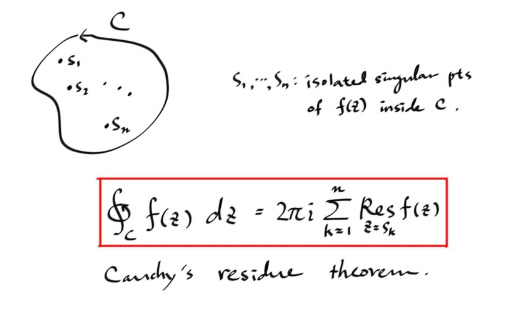 C
• s₁
• s₂ · . .
• sₙ
s₁, ⋯, sₙ : isolated singular pts
of f(z) inside C.
∮_C f(z) dz = 2πi ∑_{k=1}^{n} Res_{z=s_k} f(z)
Cauchy's residue theorem.